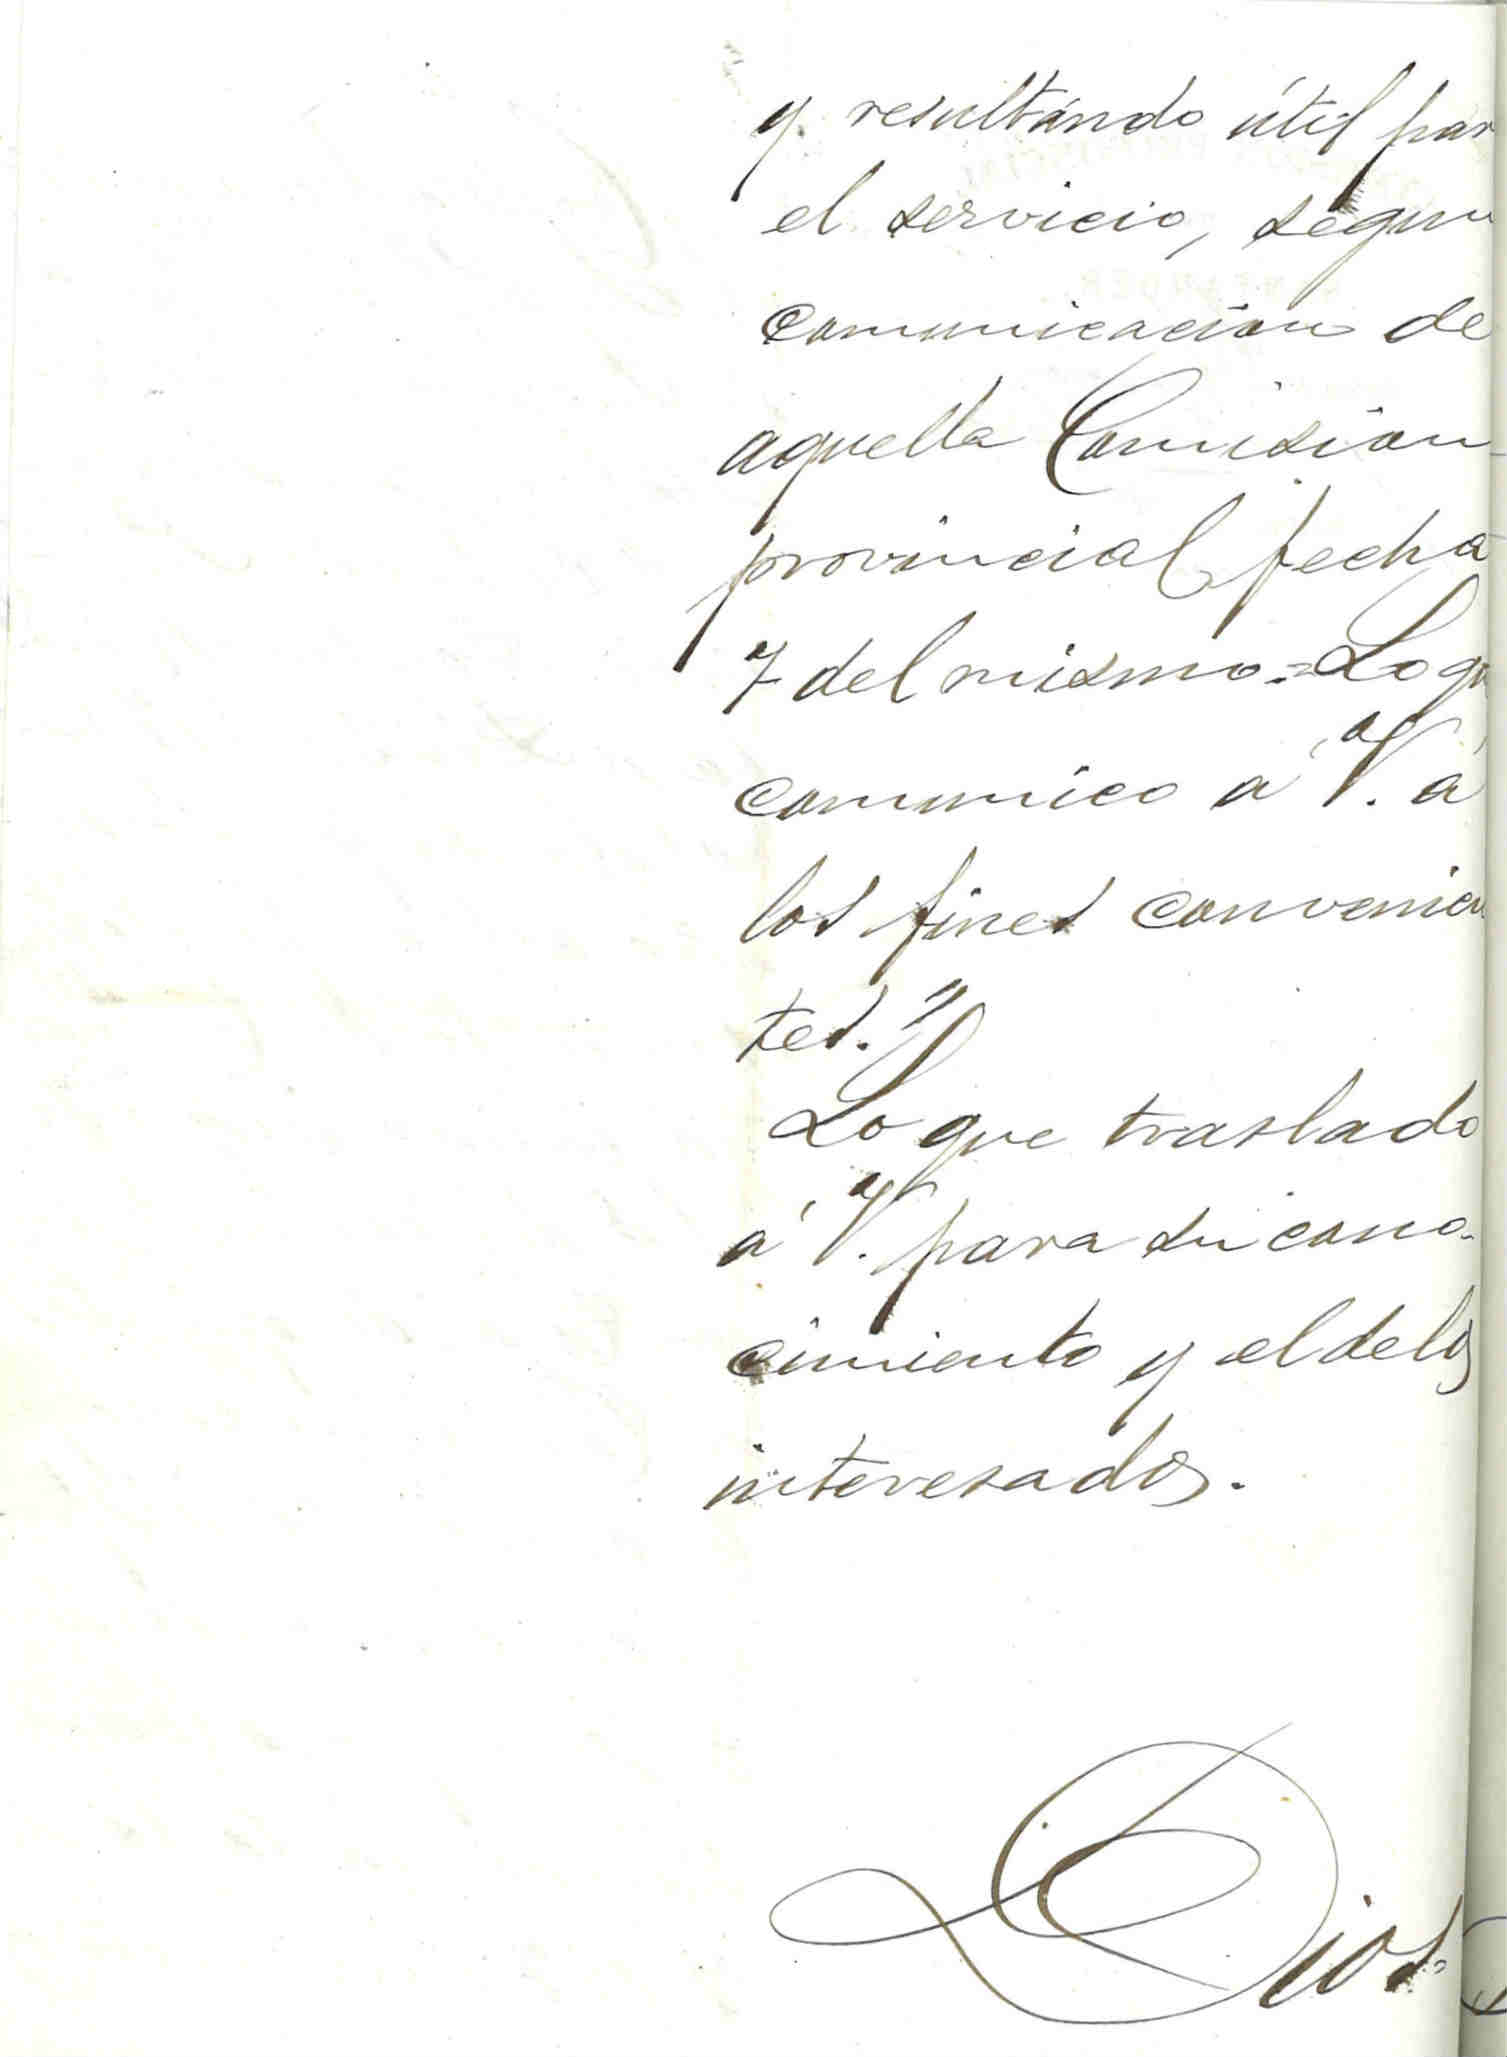 y resultando útil par
el servicio, segun
comunicacion de
aquella Comision
provincial fecha
7 del mismo.=Lo qu
comunico á V. á
los fines convenien
tes."
Lo que traslado
á V. para su cono-
cimiento y el de los
interesados.
Dios